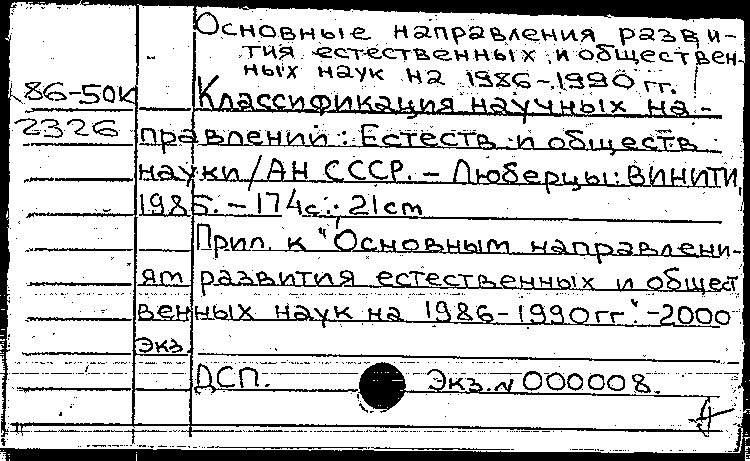 Основные направления разви-
тия естественных и обществен-
ных наук на 1986-1990 гг.
86-50К Классификация научных на-
2326 правлений: Естеств. и обществ.
науки/АН СССР. - Люберцы: ВИНИТИ,
1985. - 174с.; 21cm
Прил. к "Основным направлени-
ям развития естественных и общест
венных наук на 1986-1990гг." -2000
экз.
ДСП. Экз. № 000008.